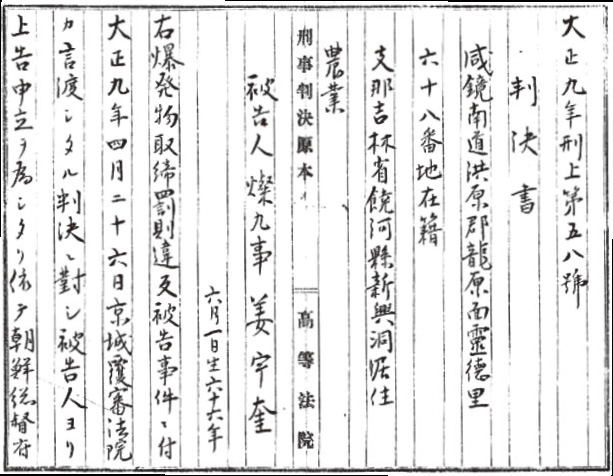 大正九年刑上第五八號
判決書
咸鏡南道洪原郡龍原面靈德里
六十八番地在籍
支那吉林省饒河縣新興洞居住
農業
刑事判決原本
高等法院
被告人燦九事 姜宇奎
六月一日生六十六年
右爆発物取締罰則違反被告事件ニ付
大正九年四月二十六日京城覆審法院
カ言渡シタル判決ニ對シ被告人ヨリ
上告申立ヲ為シタリ依テ朝鮮総督府